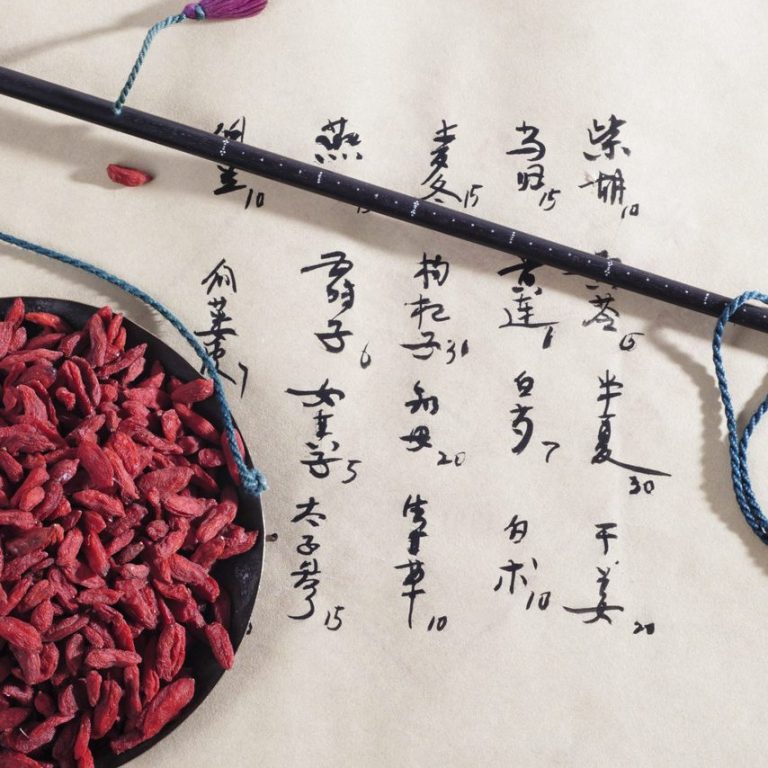 柴胡10 黄芩6 半夏30 干姜20
当归15 黄连6 白芍7 白术10
麦冬15 枸杞子30 知母20 10
燕 子6 女贞子5 太子参15
10 7